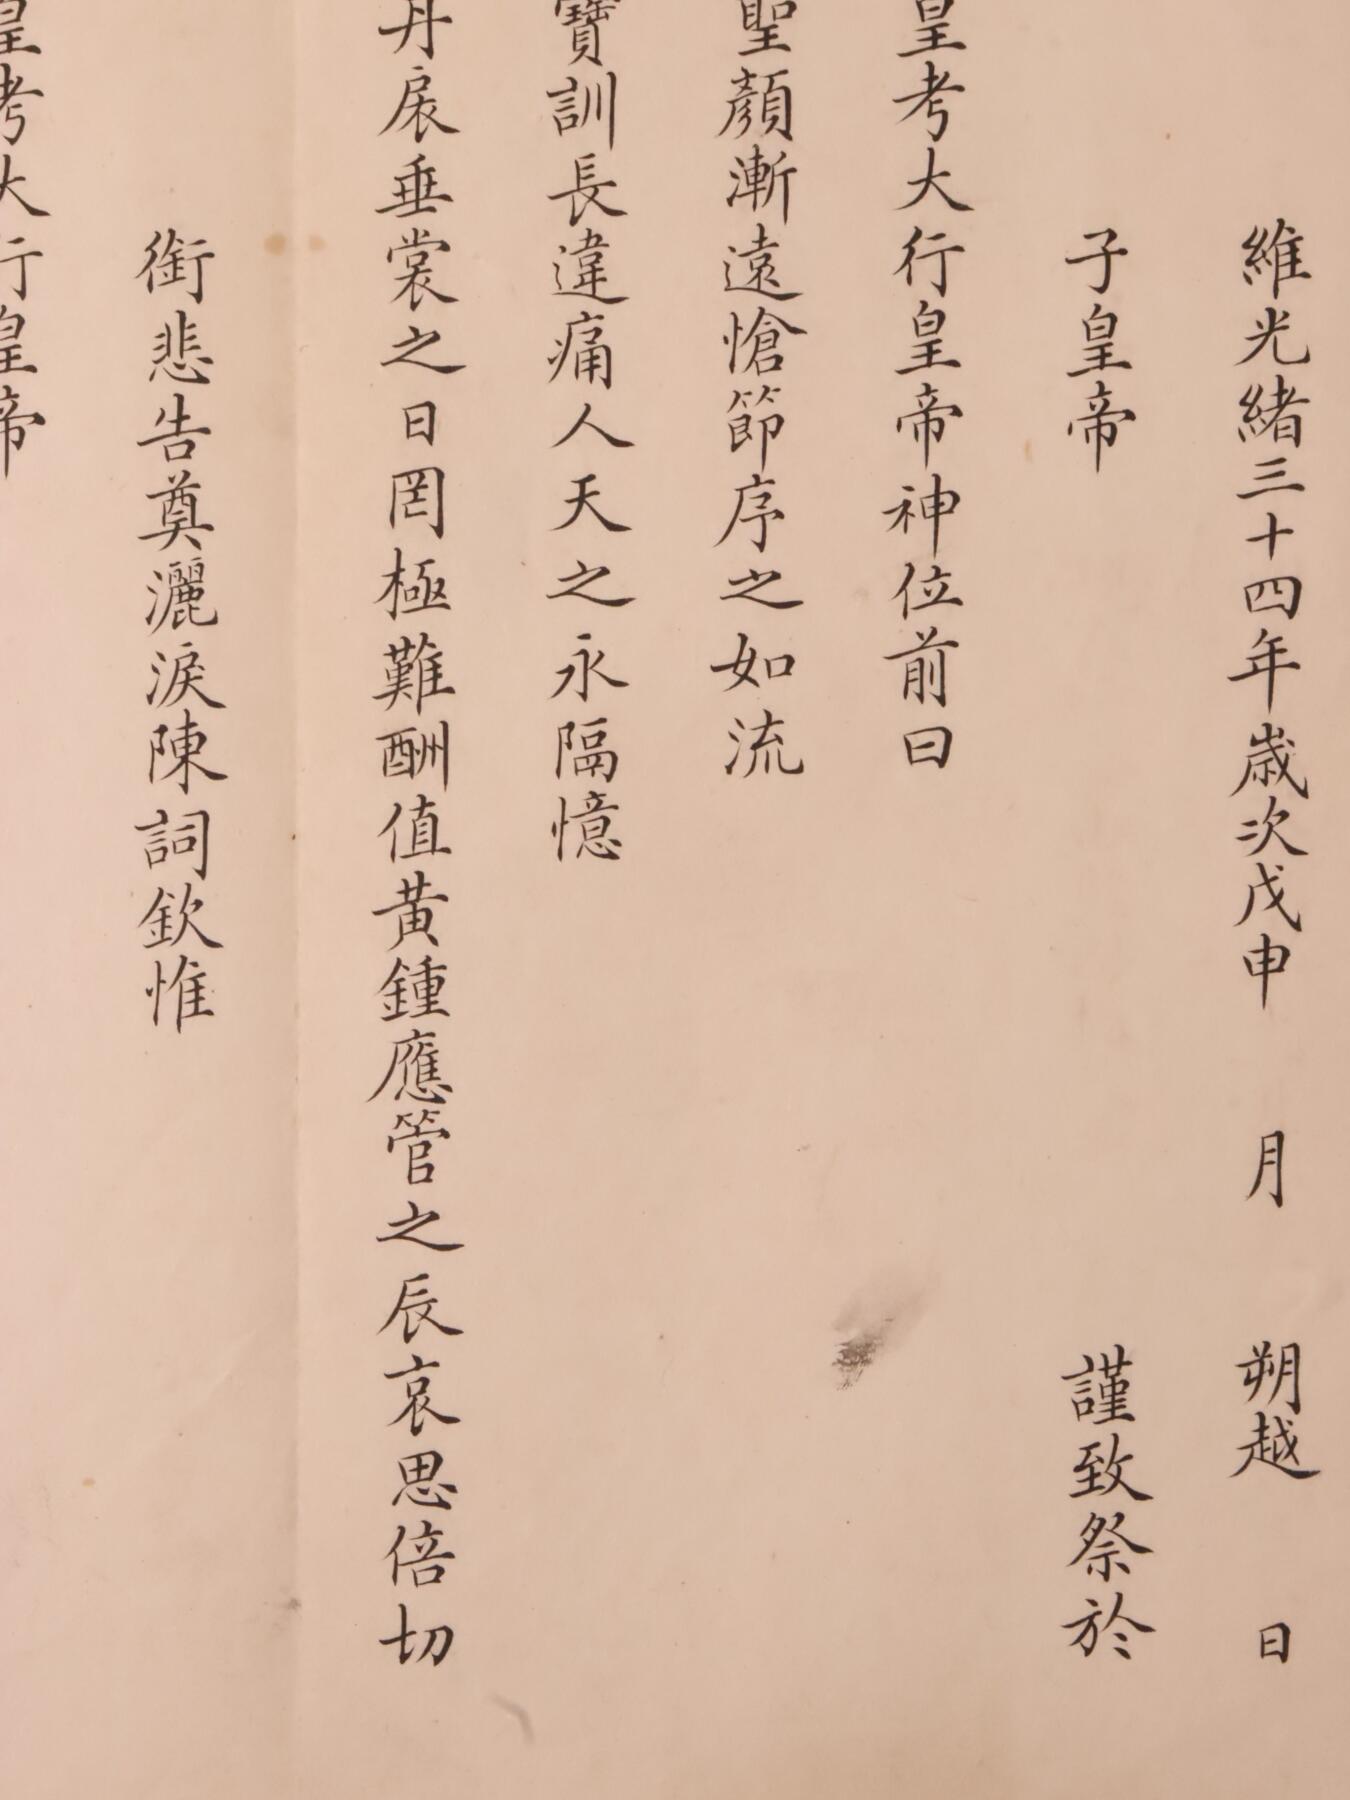 維光緒三十四年歲次戊申　月　朔越　日
子皇帝　謹致祭於
皇考大行皇帝神位前曰
聖顏漸遠愴節序之如流
寶訓長違痛人天之永隔憶
丹扆垂裳之日罔極難酬值黃鍾應管之辰哀思倍切
銜悲告奠灑淚陳詞欽惟
皇考大行皇帝